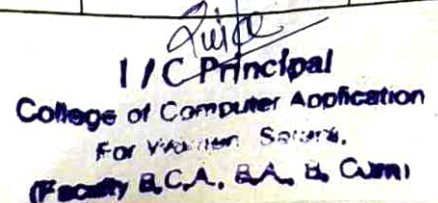 I/C Principal
College of Computer Application
For Women
(Faculty B.C.A., B.A., B. Com)